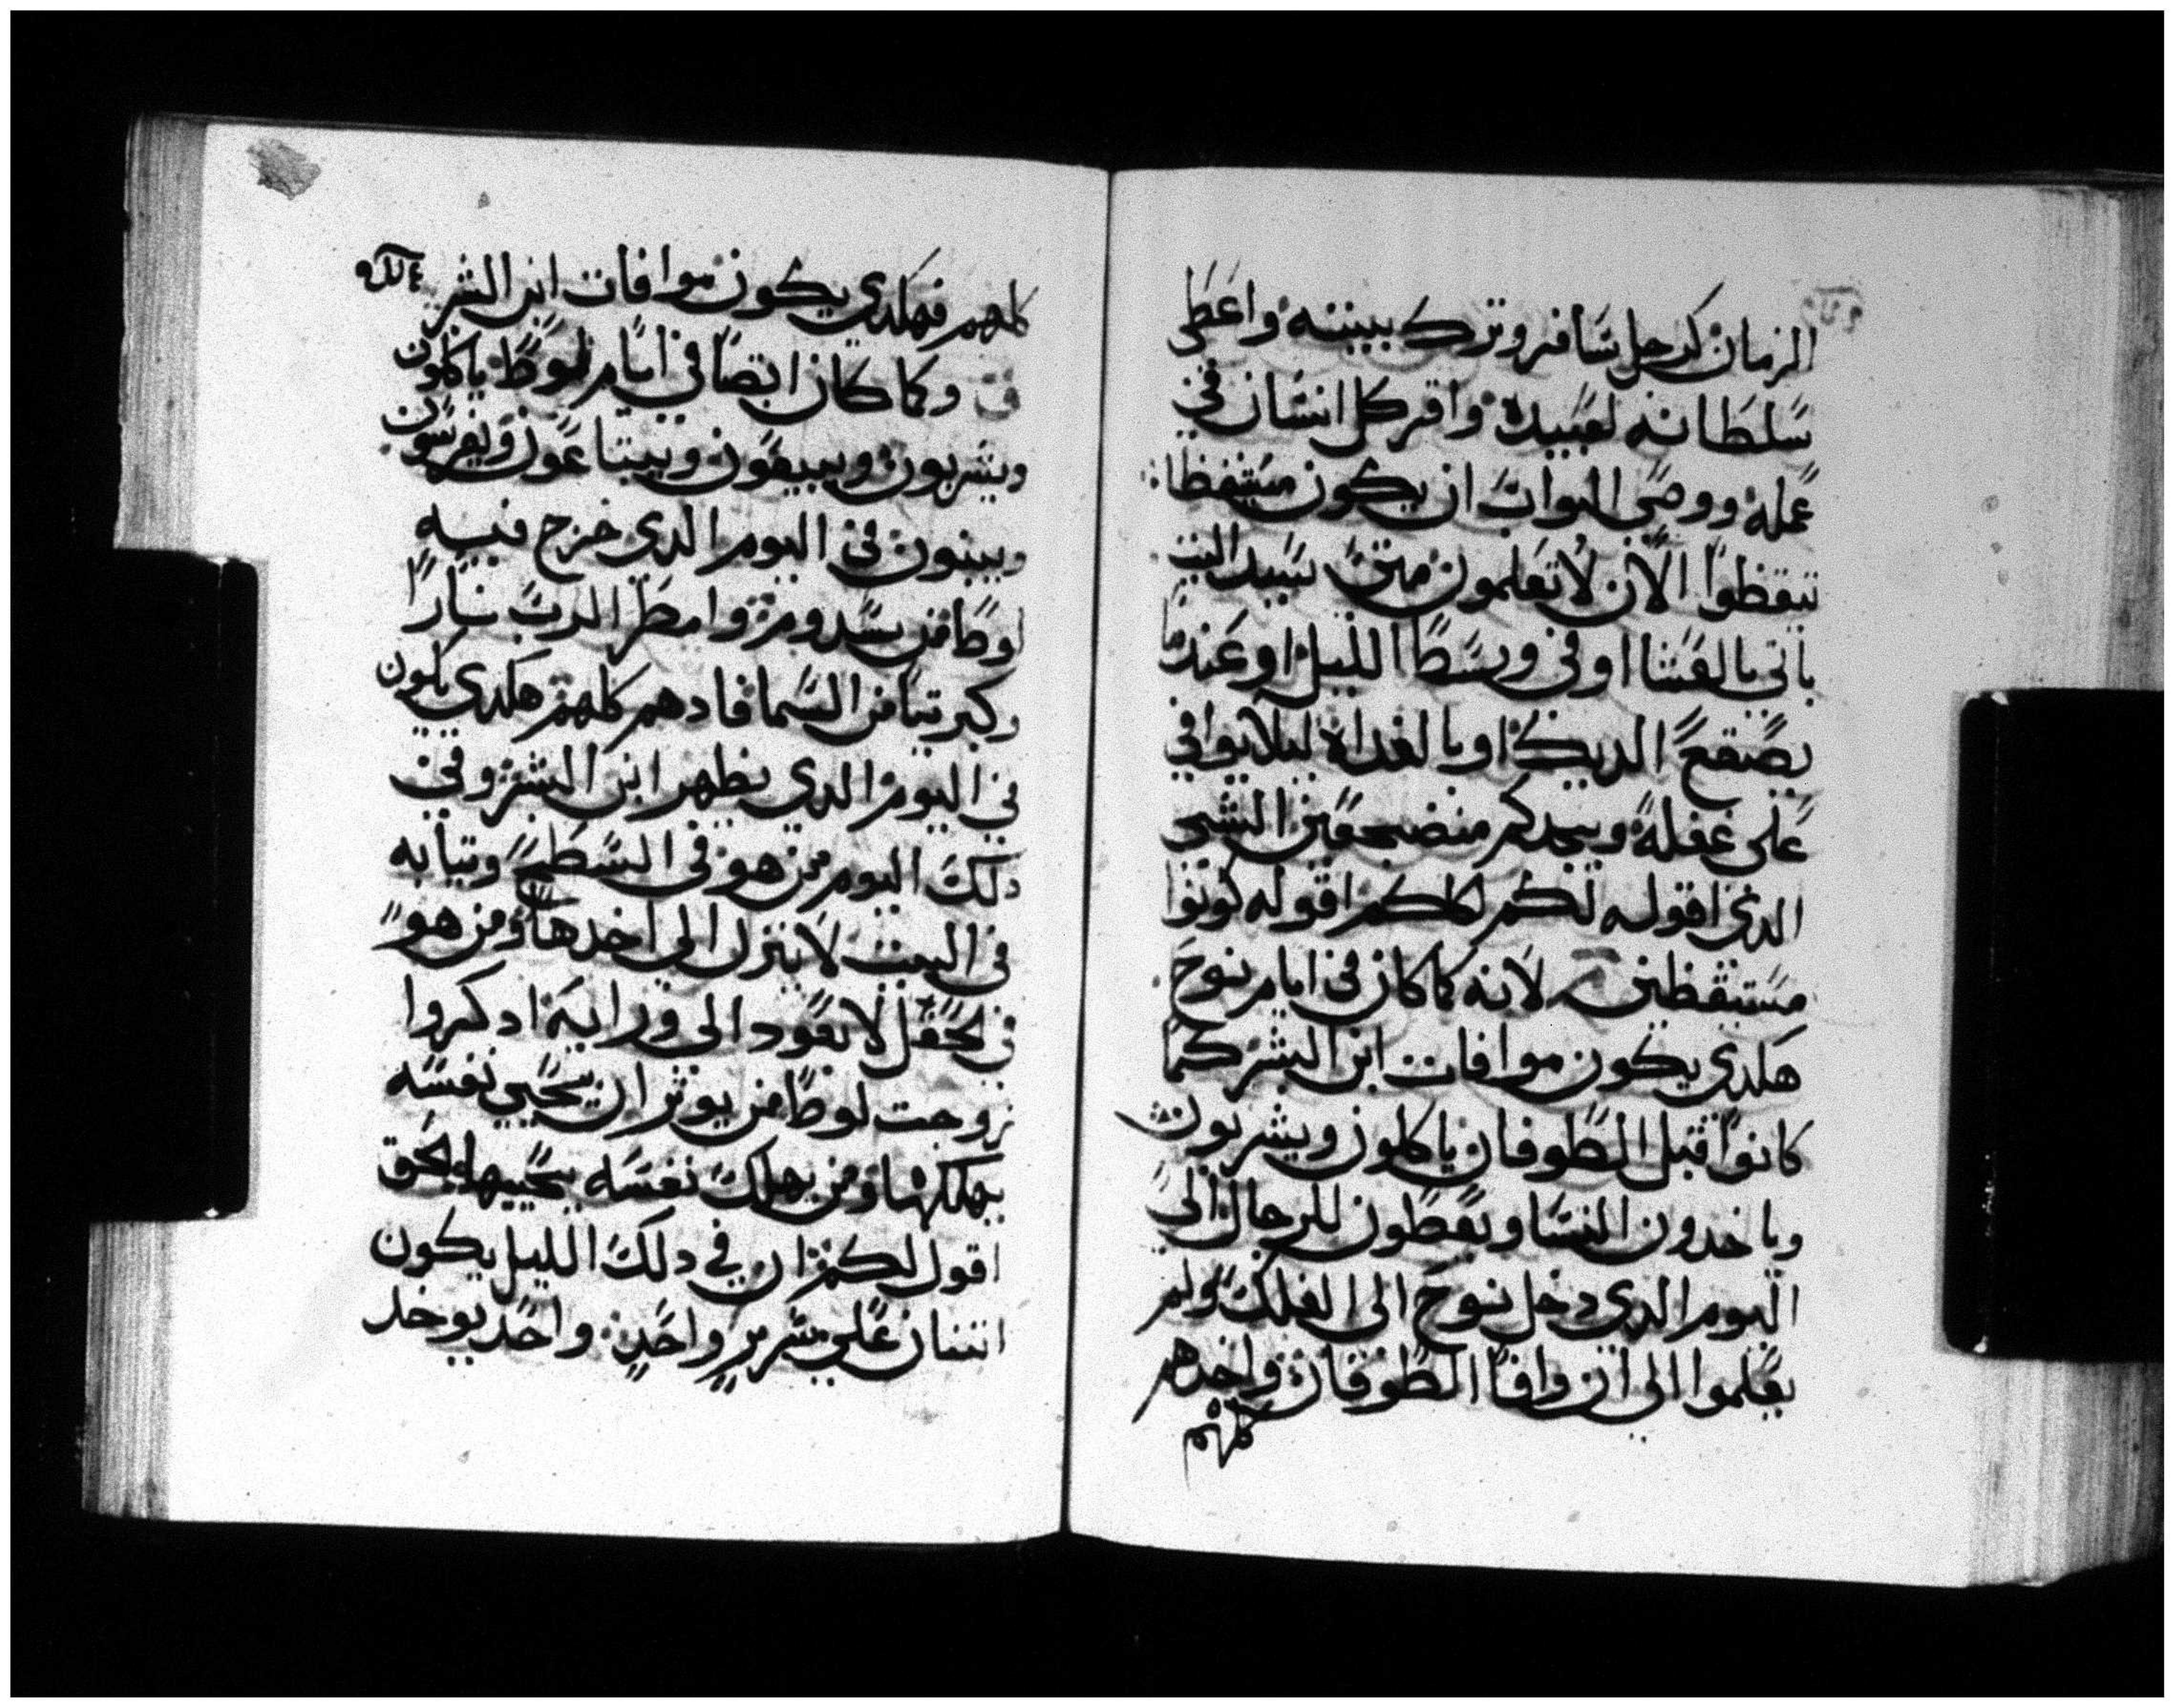 الزمان كرجل سافر وترك بيته واعطى
سلطانه لعبيده واقر كل انسان في
عمله ووصى البواب ان يكون متيقظا
تيقظوا الان لا تعلمون متى سيد البيت
ياتي بالعشا او في وسط الليل او عندما
يصقع الديك او بالغداة ليلا يوافي
على غفلة ويجدكم منضجعين الشي
الدي اقوله لكم لكلكم اقوله كونوا
مستيقظين لانه كما كان في ايام نوح
هكدي يكون موافات ابن البشر كما
كانوا قبل الطوفان ياكلون ويشربون
وياخدون النسا ويعطون للرجال الى
اليوم الدي دخل نوح الى الفلك ولم
يعلموا الى ان وافا الطوفان واخدهم
كلهم
كلهم فهكدي يكون موافات ابن البشر
وكما كان ايضا في ايام لوط ياكلون
ويشربون ويبيعون ويبتاعون ويغرسون
ويبنون في اليوم الدي خرج فيه
لوط من سدوم وامطر الرب نارا
وكبريتا من السما فادهم كلهم هكدي يكون
في اليوم الدي يظهر ابن البشر وفي
دلك اليوم من هو في السطح وتيابه
في البيت لا ينزل الى اخدها ومن هو
في الحقل لا يعود الى ورايه ادكروا
زوجت لوط من يوثر ان يحيي نفسه
يهلكها ومن يهلك نفسه يحييها بحق
اقول لكم ان في دلك الليل يكون
اتنان على سرير واحد واحد يوخد